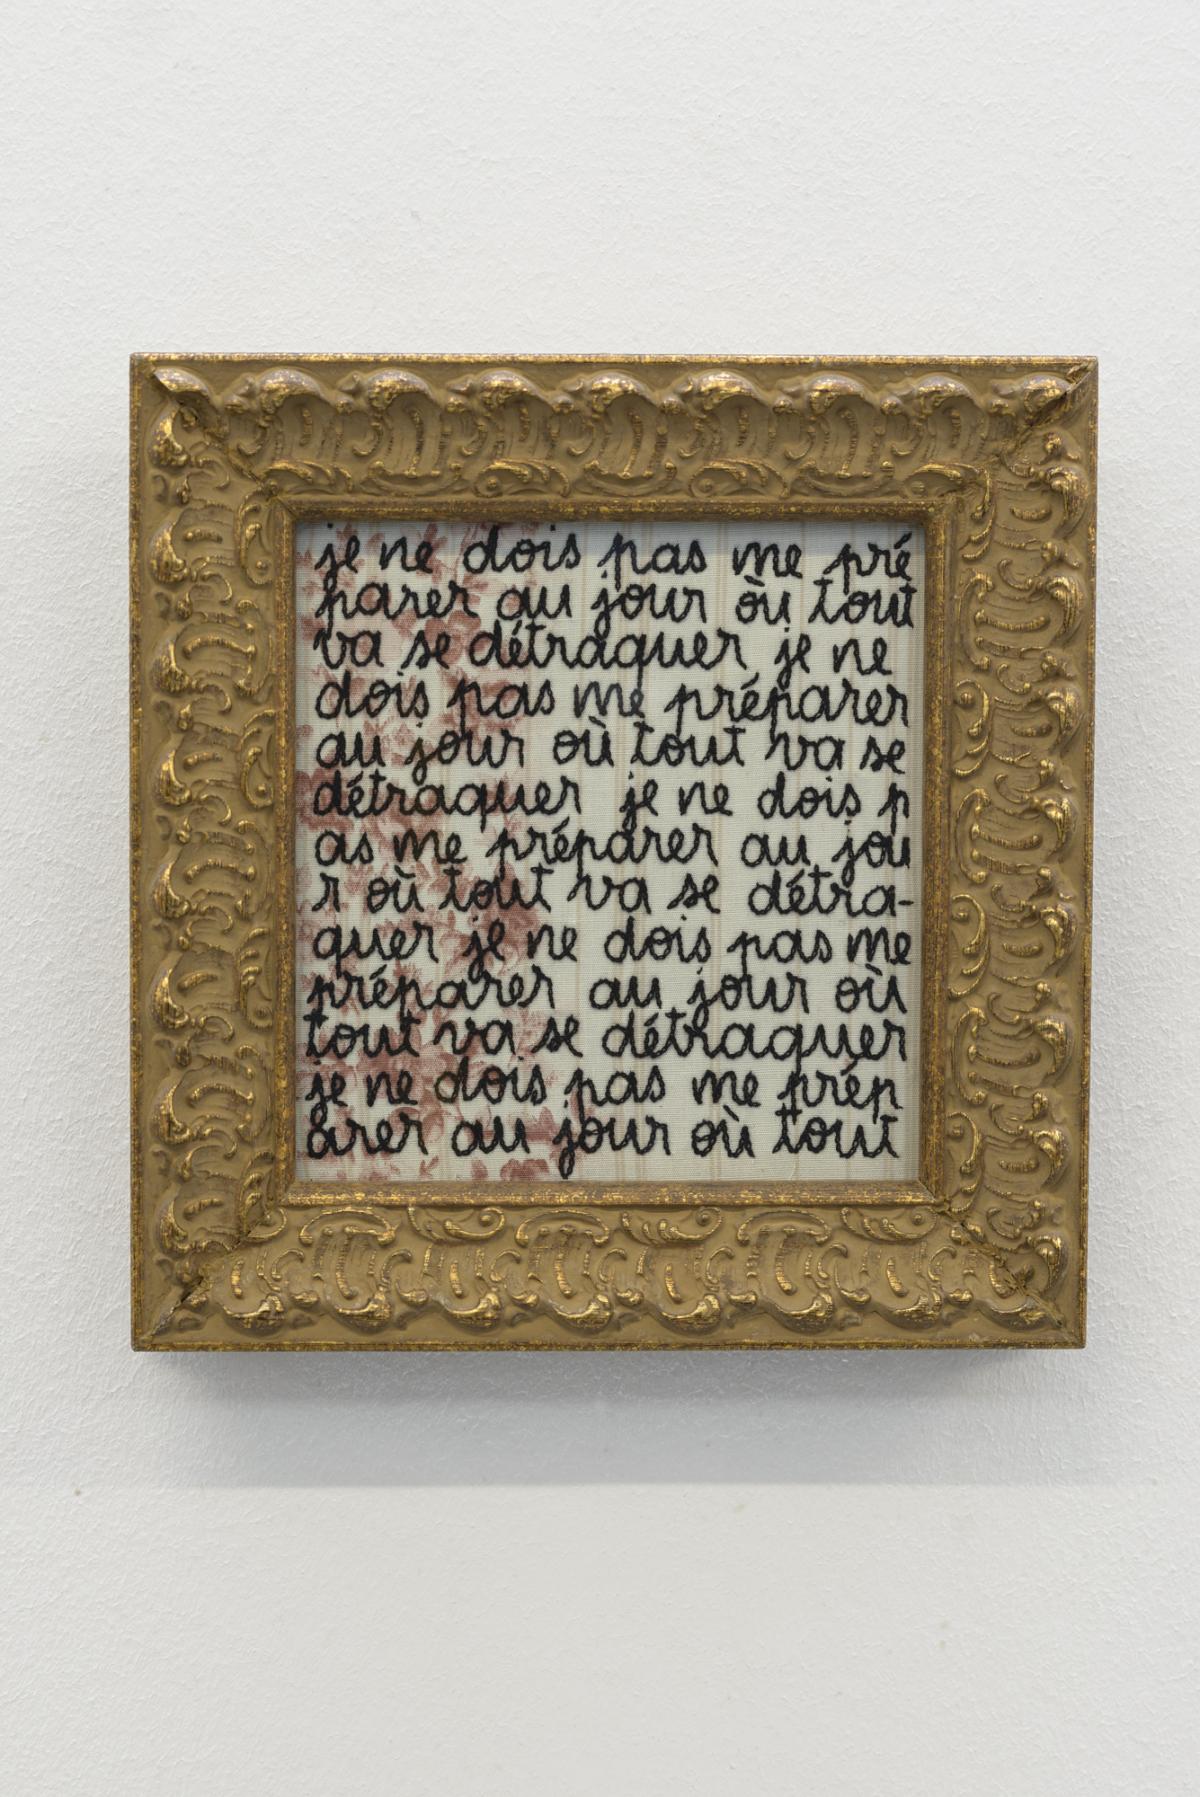 je ne dois pas me pré
parer au jour où tout
va se détraquer je ne
dois pas me préparer
au jour où tout va se
détraquer je ne dois p
as me préparer au jou
r où tout va se détra-
quer je ne dois pas me
préparer au jour où
tout va se détraquer
je ne dois pas me prép
arer au jour où tout